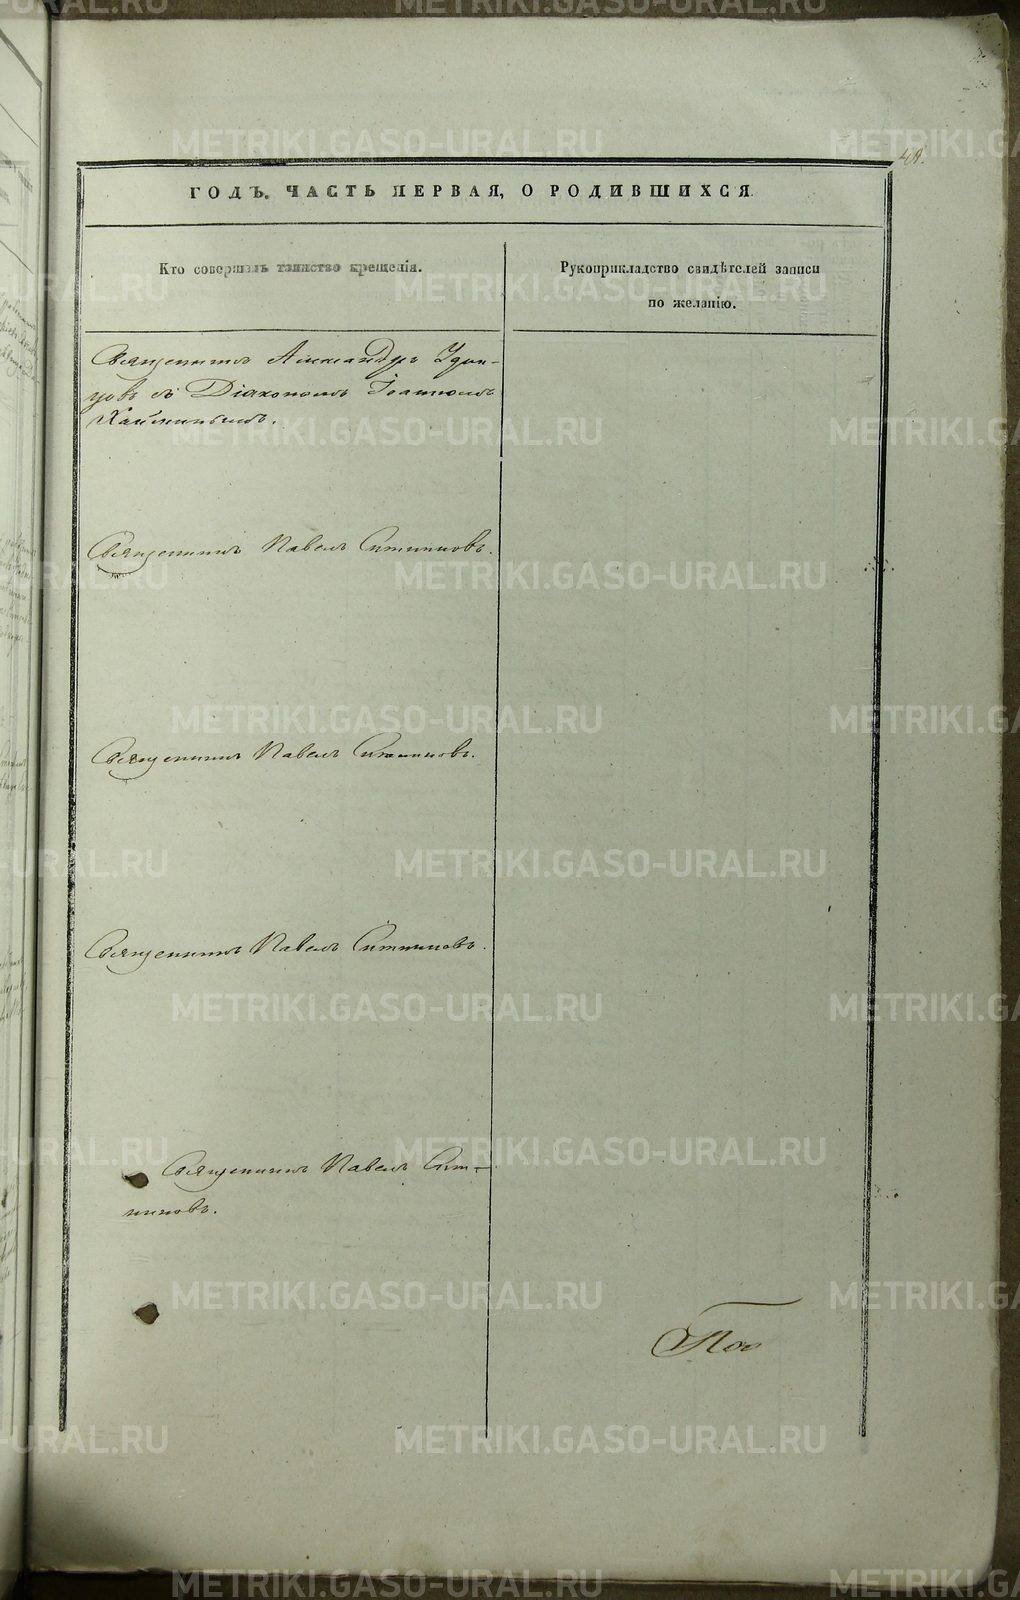 48.
ГОДЪ. ЧАСТЬ ПЕРВАЯ, О РОДИВШИХСЯ
Кто совершалъ таинство крещенія.
Рукоприкладство свидѣтелей записи
по желанію.
Священникъ Александръ Удин-
цовъ съ Діакономъ Іоанномъ
Хайминымъ.
Священникъ Павелъ Ситниковъ.
Священникъ Павелъ Ситниковъ.
Священникъ Павелъ Ситниковъ.
Священникъ Павелъ Сит-
никовъ.
По
METRIKI.GASO-URAL.RU